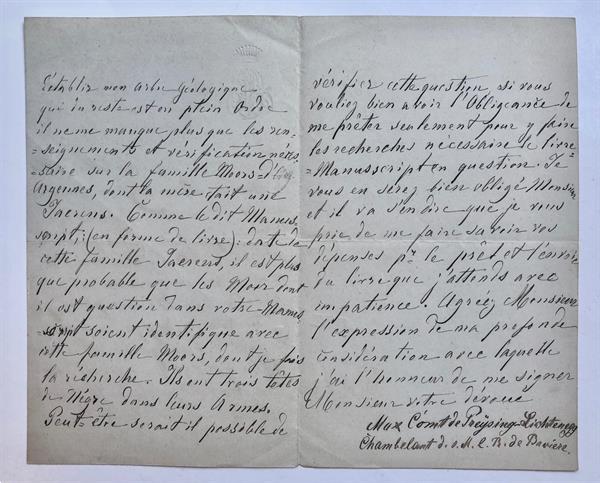 établir mon arbre Géologique
qui du reste est en plein Ordre
il ne me manque plus que les ren-
=seignements et vérification néces
=saire sur la famille Moors d'
Argennes, dont la mère était une
Traerens. Comme le dit Manus
script; (en forme de livre): date de
cette famille Traerens, il est plus
que probable que les Moor dont
il est question dans votre Manus
=script soient identifique avec
cette famille Moors, dont je fais
la récherche. Ils ont trois têtes
de Nègre dans leurs Armes.
Peut-être serait il possible de
vérifier cette question, si vous
vouliez bien avoir l'Obligeance de
me prêter seulement pour y faire
les recherches necessaire le livre=
Manusscript en question. Je
vous en sérez bien obligé Monsieur
et il va s'en dire que je vous
prie de me faire savoir vos
dépenses pr. le prêt et l'envoi
du livre que j'attends avec
impatience. Agréez Monsieur
l'expression de ma profonde
considération avec laquelle
j'ai l'honneur de me signer
Monsieur votre dévoué
Max Comt de Preÿsing-Lichtenegg
Chambelant d. s. M. L. R. de Baviere.